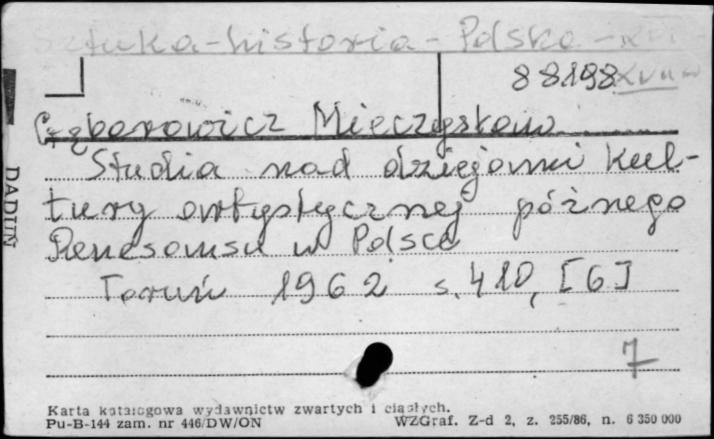 Sztuka - historia - Polska - XVI
88198 XVII w
Gębarowicz Mieczysław
Studia nad dziejami kul-
tury artystycznej późnego
Renesansu w Polsce
Toruń 1962 s. 410, [6]
7
DADUŃ
Karta katalogowa wydawnictw zwartych i ciągłych.
Pu-B-144 zam. nr 446/DW/ON WZGraf. Z-d 2, z. 255/86, n. 6 350 000